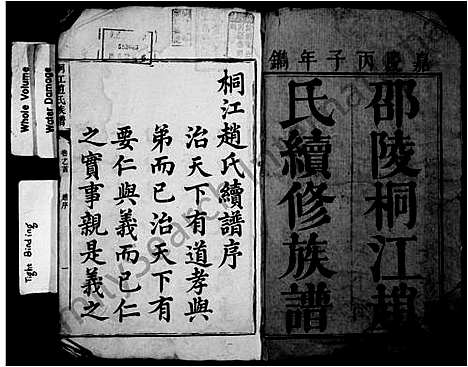 嘉慶丙子年鐫
邵陵桐江趙
氏續修族譜
桐江趙氏續譜序
治天下有道孝與
弟而已治天下有
要仁與義而已仁
之實事親是義之
桐江趙氏族譜
卷乙首
Whole Volume
Water Damage
Tight Binding